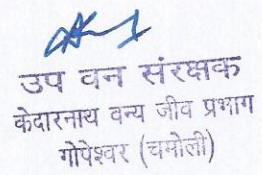 उप वन संरक्षक
केदारनाथ वन्य जीव प्रभाग
गोपेश्वर (चमोली)